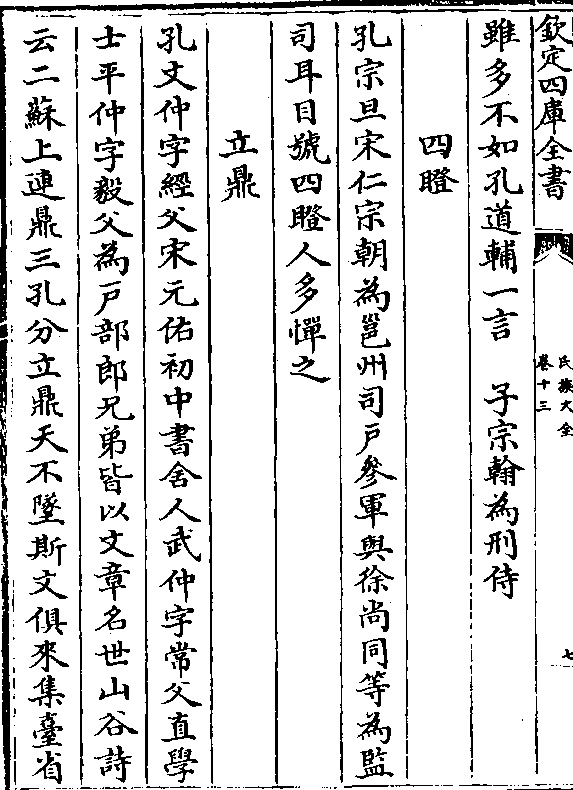 欽定四庫全書
氏族大全
卷十三
七
雖多不如孔道輔一言　子宗翰為刑侍
四瞪
孔宗旦宋仁宗朝為邕州司戸參軍與徐尚同等為監
司耳目號四瞪人多憚之
立鼎
孔文仲字經父宋元佑初中書舍人武仲字常父直學
士平仲字毅父為戸部郎兄弟皆以文章名世山谷詩
云二蘇上連鼎三孔分立鼎天不墜斯文俱來集臺省